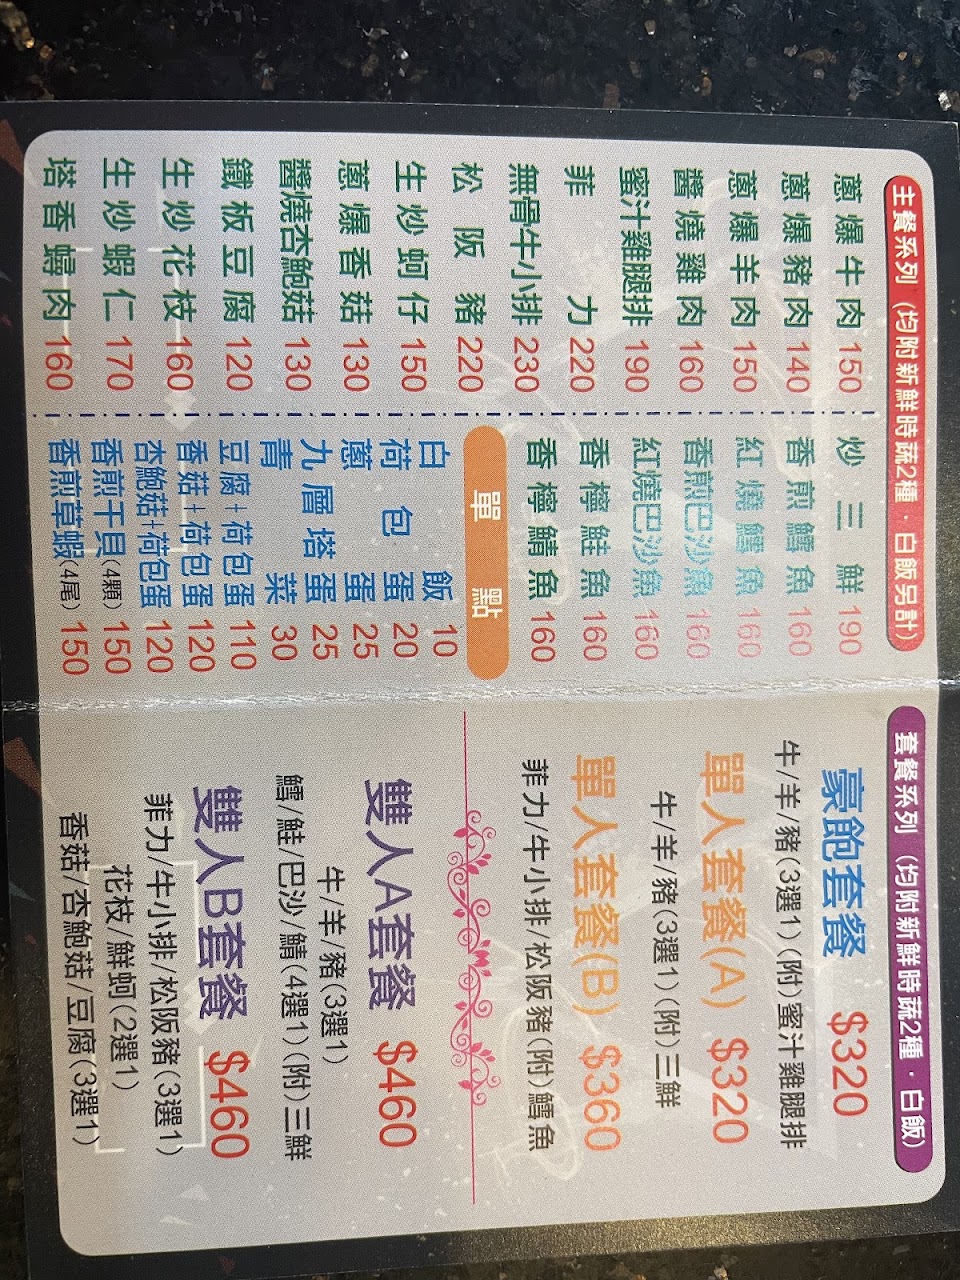 主餐系列（均附新鮮時蔬2種．白飯另計）
蔥爆牛肉 150
蔥爆豬肉 140
蔥爆羊肉 150
醬燒雞肉 160
蜜汁雞腿排 190
菲力 220
無骨牛小排 230
松阪豬 220
生炒蚵仔 150
蔥爆香菇 130
醬燒杏鮑菇 130
鐵板豆腐 120
生炒花枝 160
生炒蝦仁 170
塔香蟳肉 160
炒三鮮 190
香煎鱈魚 160
紅燒鱈魚 160
香煎巴沙魚 160
紅燒巴沙魚 160
香檸鮭魚 160
香檸鯖魚 160
單點
白飯 10
荷包蛋 20
蔥蛋 25
九層塔蛋 25
青菜 30
豆腐+荷包蛋 110
香菇+荷包蛋 120
杏鮑菇+荷包蛋 120
香煎干貝(4顆) 150
香煎草蝦(4尾) 150
套餐系列（均附新鮮時蔬2種．白飯）
豪飽套餐 $320
牛/羊/豬(3選1)(附)蜜汁雞腿排
單人套餐(A) $320
牛/羊/豬(3選1)(附)三鮮
單人套餐(B) $360
菲力/牛小排/松阪豬(附)鱈魚
雙人A套餐 $460
牛/羊/豬(3選1)
鱈/鮭/巴沙/鯖(4選1)(附)三鮮
雙人B套餐 $460
菲力/牛小排/松阪豬(3選1)
花枝/鮮蚵(2選1)
香菇/杏鮑菇/豆腐(3選1)